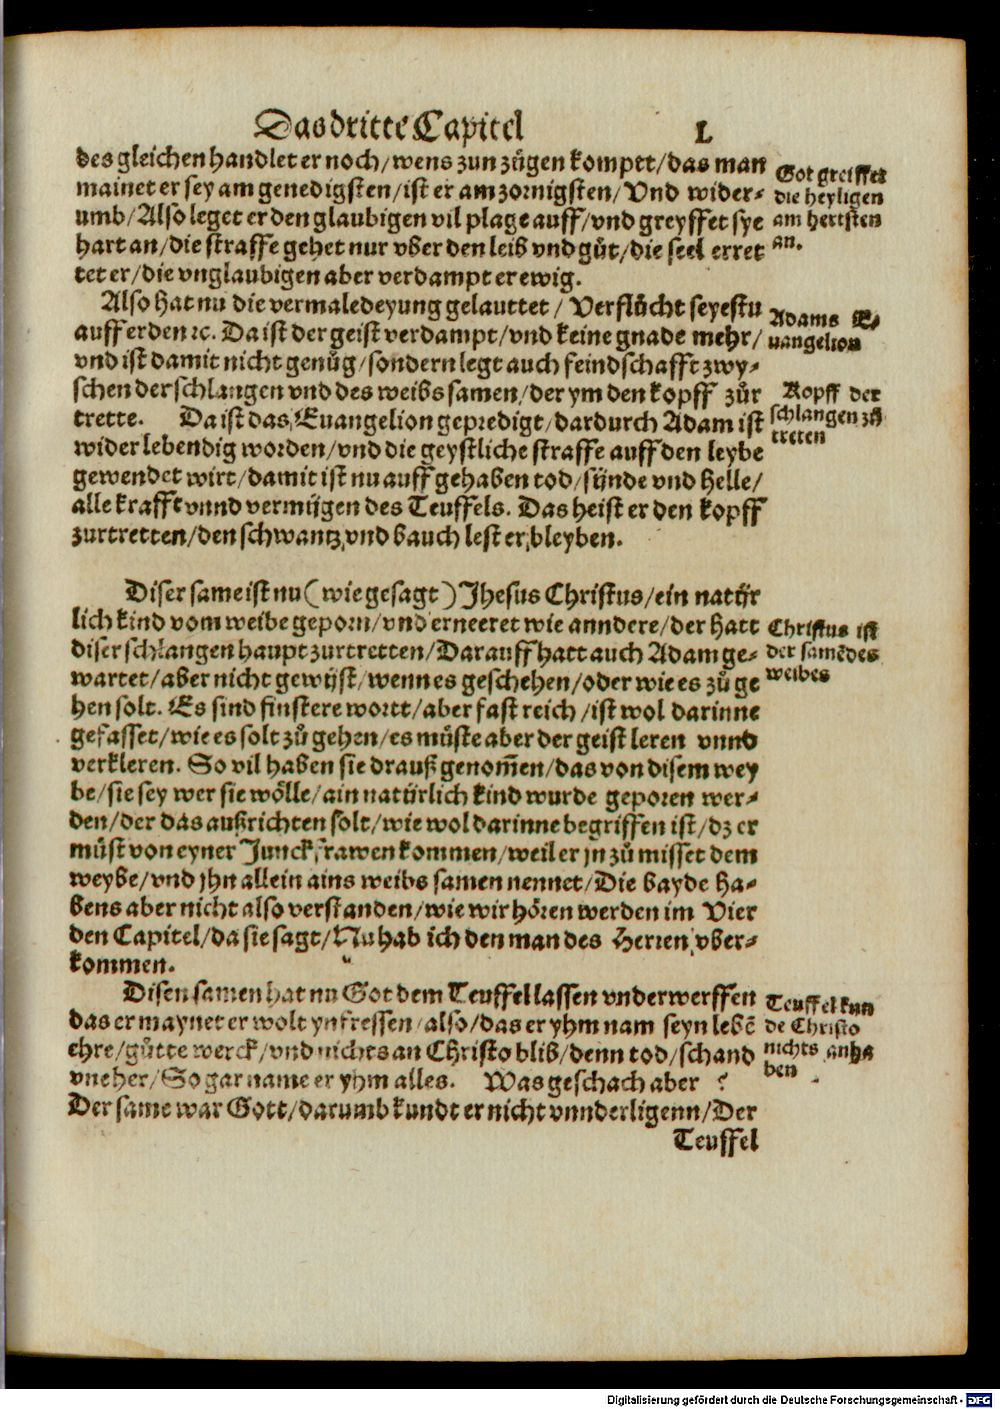 Das dritte Capitel L
des gleichen handlet er noch/wens zun zügen komptt/das man
mainet er sey am genedigsten/ist er am zornigsten/Vnd wider-
umb/Also leget er den glaubigen vil plage auff/vnd greyffet sye
hart an/die straffe gehet nur vber den leib vnd gůt/die seel erret
tet er/die vnglaubigen aber verdampt er ewig.
Got greiffet
die heyligen
am hertsten
an.
Also hat nu die vermaledeyung gelauttet/ Verflůcht seyestu
auff erden ꝛc. Da ist der geist verdampt/vnd keine gnade mehr/
vnd ist damit nicht genůg/sondern legt auch feindschafft zwy-
schen der schlangen vnd des weibs samen/der ym den kopff zůr
trette. Da ist das Euangelion gepredigt/dardurch Adam ist
wider lebendig worden/vnd die geystliche straffe auff den leybe
gewendet wirt/damit ist nu auff gehaben tod/sünde vnd Helle/
alle krafft vnnd vermügen des Teuffels. Das heist er den kopff
zurtretten/den schwantz vnd bauch lest er bleyben.
Adams E-
uangelion
Kopff der
schlangen zů
treten
Diser same ist nu (wie gesagt) Jhesus Christus/ein natür
lich kind vom weibe geporn/vnd erneeret wie anndere/der hatt
diser schlangen haupt zurtretten/Darauff hatt auch Adam ge-
wartet/aber nicht gewüst/wenn es geschehen/oder wie es zů ge
hen solt. Es sind finstere wortt/aber fast reich/ist wol darinne
gefasset/wie es solt zů gehen/es můste aber der geist leren vnnd
verkleren. So vil haben sie drauß genom̄en/das von disem wey
be/sie sey wer sie wölle/ain natürlich kind wurde geporen wer-
den/der das außrichten solt/wie wol darinne begriffen ist/dz er
můst von eyner Junckfrawen kommen/weil er jn zů misset dem
weybe/vnd jhn allein ains weibs samen nennet/Die bayde ha-
bens aber nicht also verstanden/wie wir hören werden im Vier
den Capitel/da sie sagt/Nu hab ich den man des Herren vber-
kommen.
Christus ist
der samē des
weibes
Disen samen hat nu Got dem Teuffel lassen vnderwerffen
das er maynet er wolt yn fressen/also/das er yhm nam seyn lebē
ehre/gůtte werck/vnd nichts an Christo blib/denn tod/schand
vneher/So gar name er yhm alles. Was geschach aber ?
Der same war Gott/darumb kundt er nicht vnnderligenn/Der
Teuffel kun
de Christo
nichts anha
ben
Teuffel
Digitalisierung gefördert durch die Deutsche Forschungsgemeinschaft - DFG